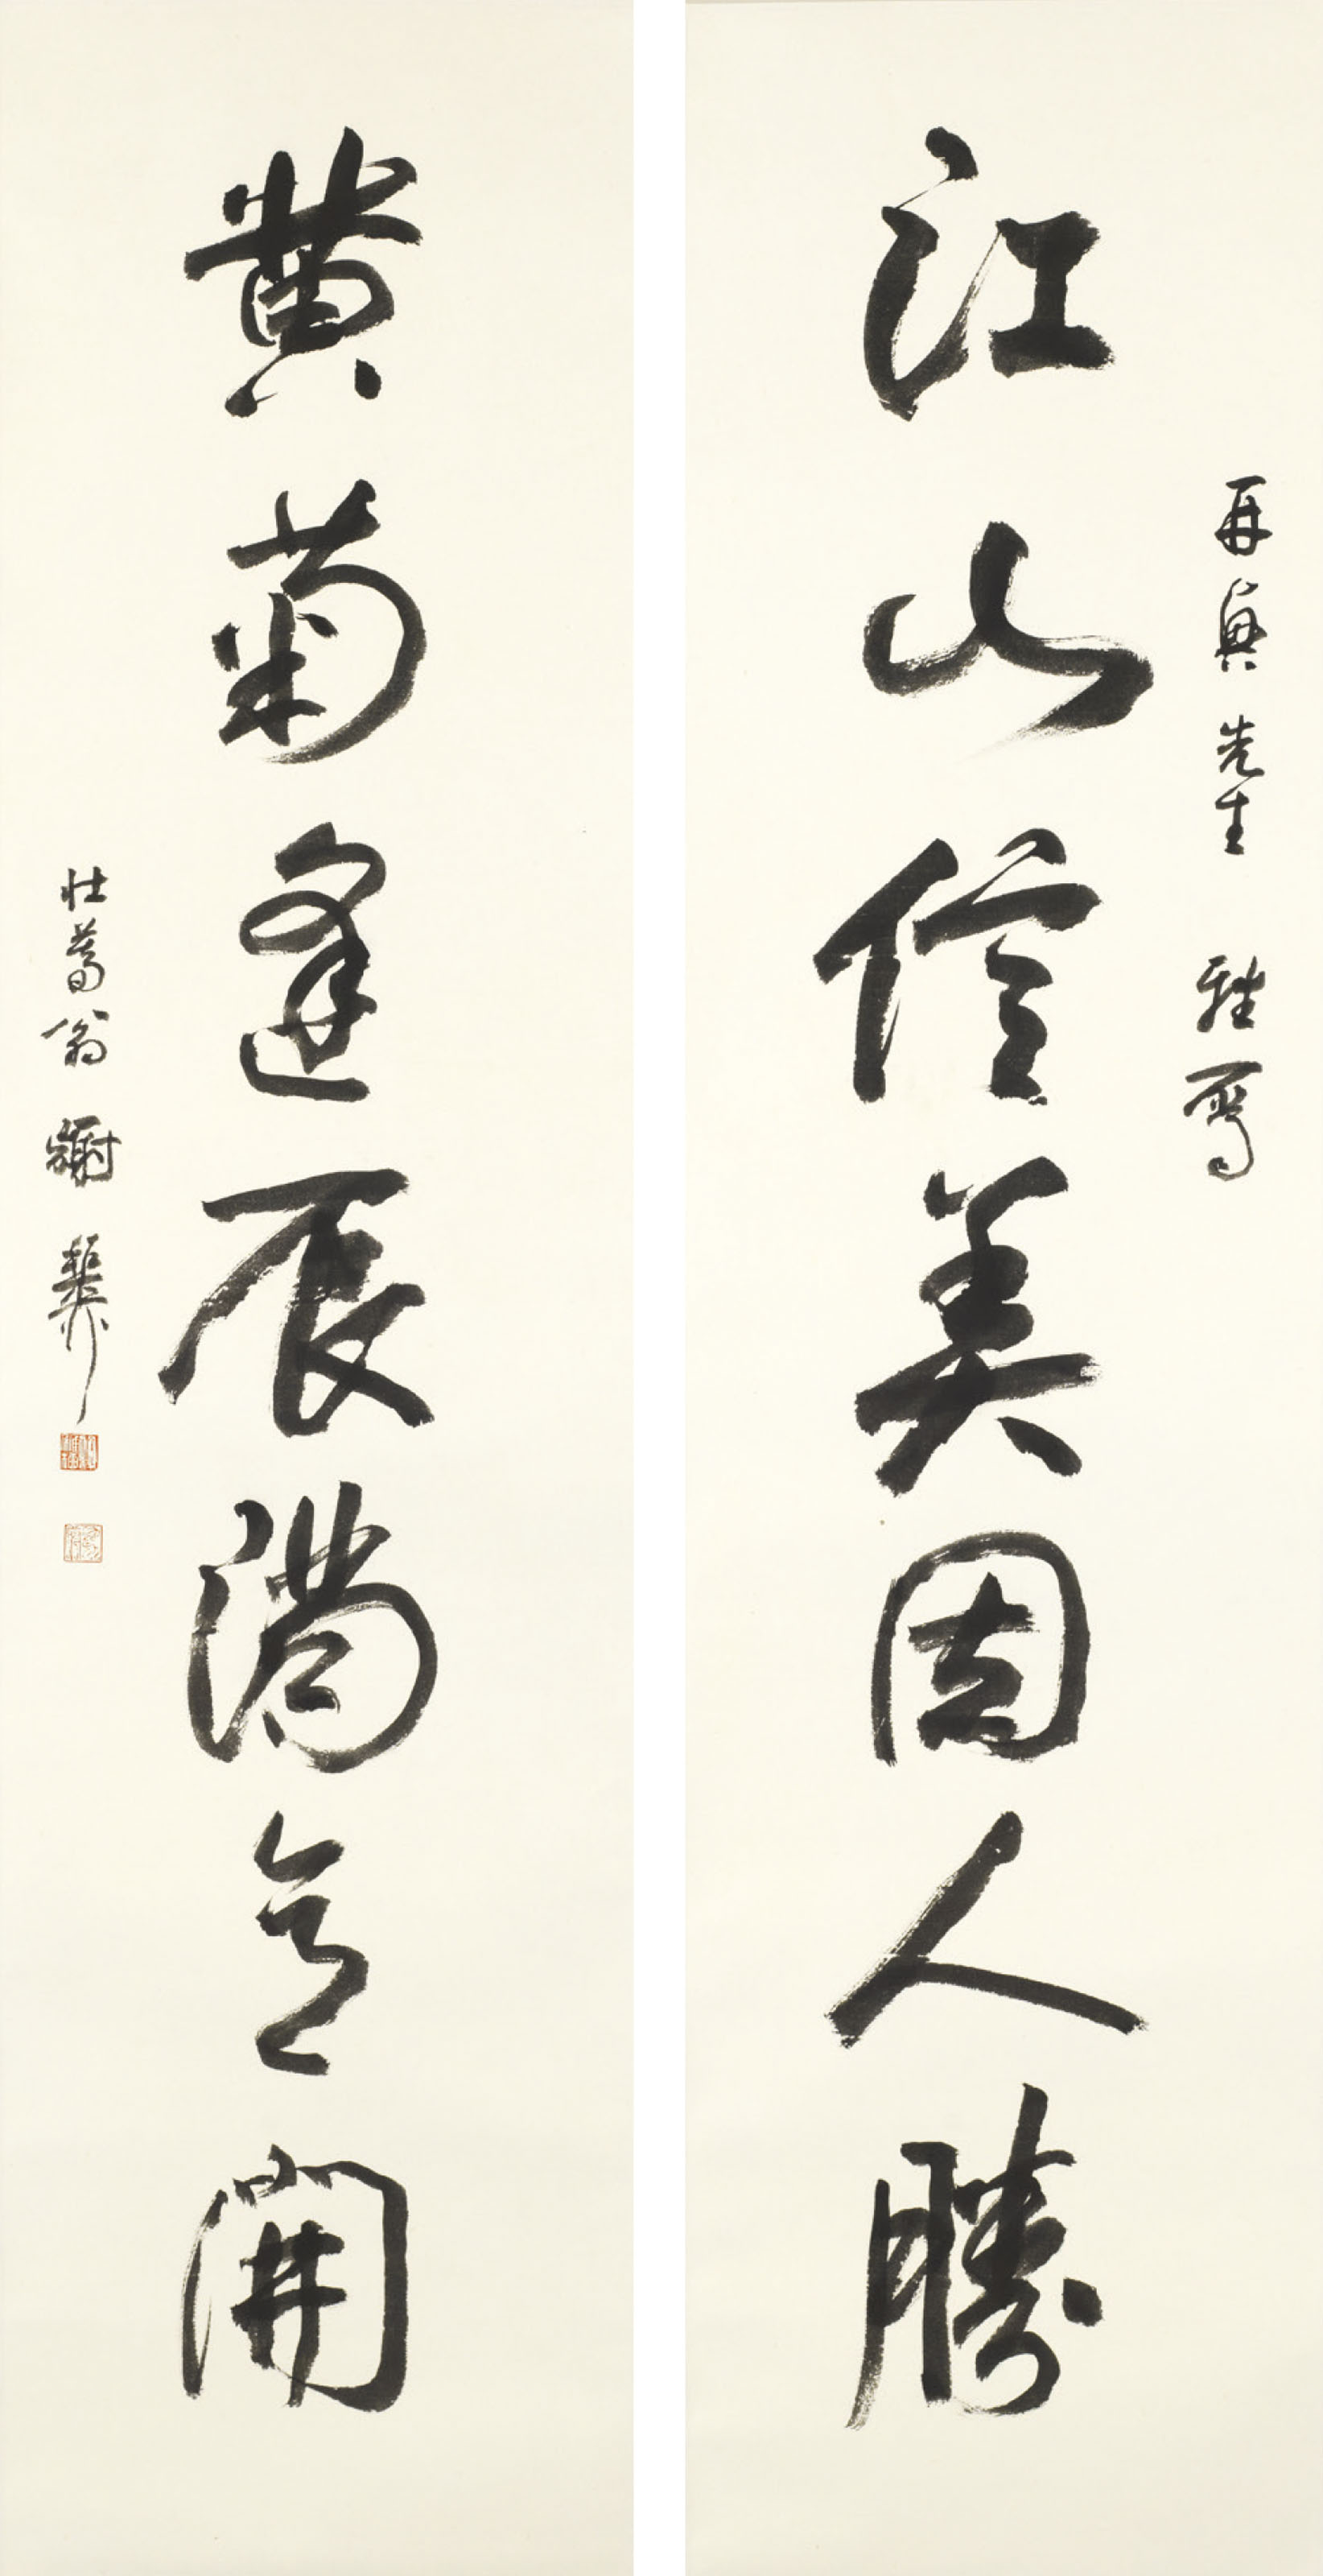 江山信美因人勝
再興先生雅屬
黃菊逢辰滿意開
壯暮翁謝稚柳